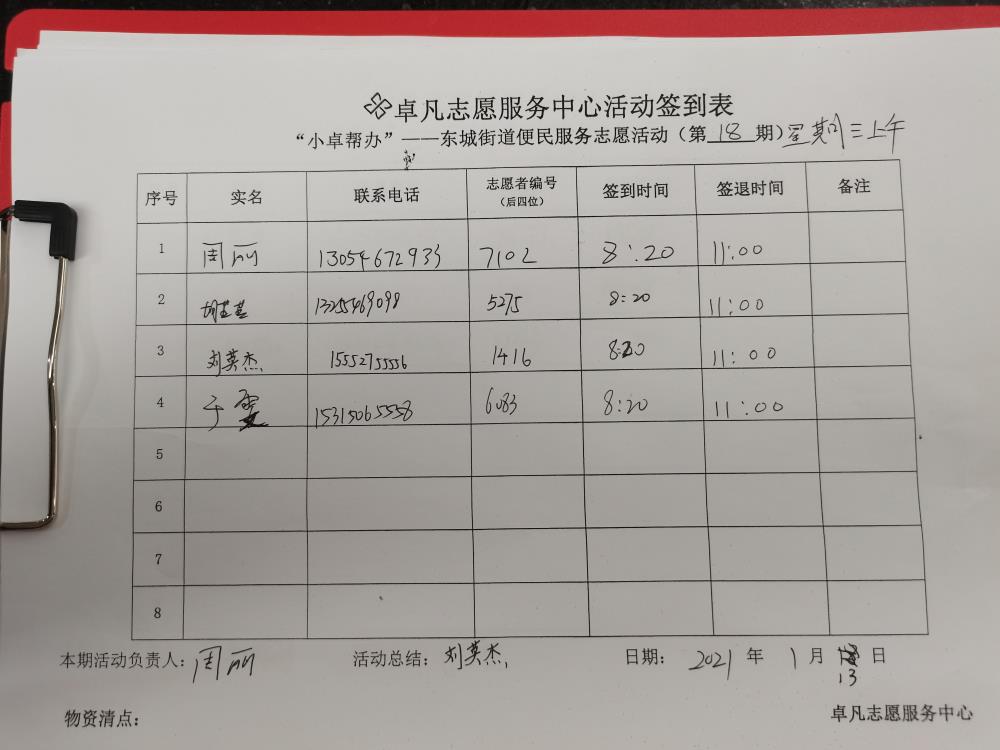 卓凡志愿服务中心活动签到表
“小卓帮办”——东城街道便民服务志愿活动（第18期）星期三上午
序号 实名 联系电话 志愿者编号（后四位） 签到时间 签退时间 备注
1 周丽 13054672933 7102 8:20 11:00
2 13255469098 5275 8:20 11:00
3 刘英杰 15552755556 1416 8:20 11:00
4 于雯 15315065558 6083 8:20 11:00
5
6
7
8
本期活动负责人：周丽 活动总结：刘英杰 日期：2021年1月13日
物资清点： 卓凡志愿服务中心